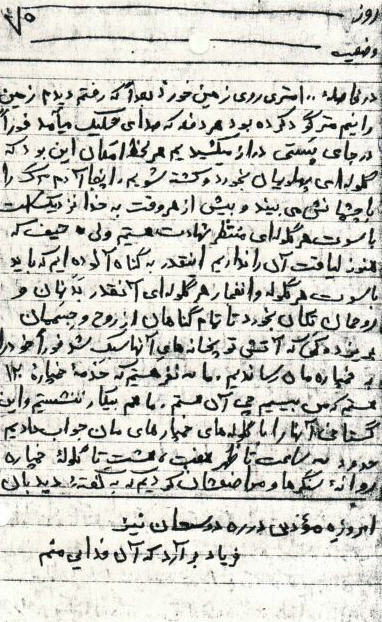 روز
۷۰
وضعیت
در فاصلهٔ ۱۰۰ متری روی زمین خورد بعداً که رفتم دیدم زمین
را نیم متر گود کرده بود هر دفعه که صدای شلیک میآمد فوراً
در جای پستی دراز میکشیدیم هر لحظه امکان این بود که
گلوله‌ای پهلویمان بخورد و کشته شویم. اینجا آدم مرگ را
با چشمانش می بیند و بیش از هر وقت به خدا نزدیک است
با سوت هر گلوله‌ای منتظر شهادت هستیم ولی حیف که
هنوز لیاقت آن را نداریم اینقدر به گناه آلوده ایم که باید
با سوت هر گلوله و انفجار هر گلوله‌ای آنقدر بدنمان و
روحمان تکان بخورد تا تمام گناهان از روح و جسممان
بریزد که آتش توپخانه‌های آنها سبک شد فوراً خود را
به خمپاره مان رساندیم. ما سه نفر هستیم که خدمهٔ خمپاره ۱۲۰
هستیم ما هم بیکار ننشستیم و این
گستاخی آنها را با گلوله‌های خمپاره‌های مان جواب دادیم
حدود سه ساعت تا ظهر هفت، هشت تا گلوله خمپاره
روانهٔ سنگرها و مواضعشان کردیم که به گفتهٔ دیدبان
امروزه مؤذن در ره دوستان نیز
فریاد بر آرد که آن فدایی منم